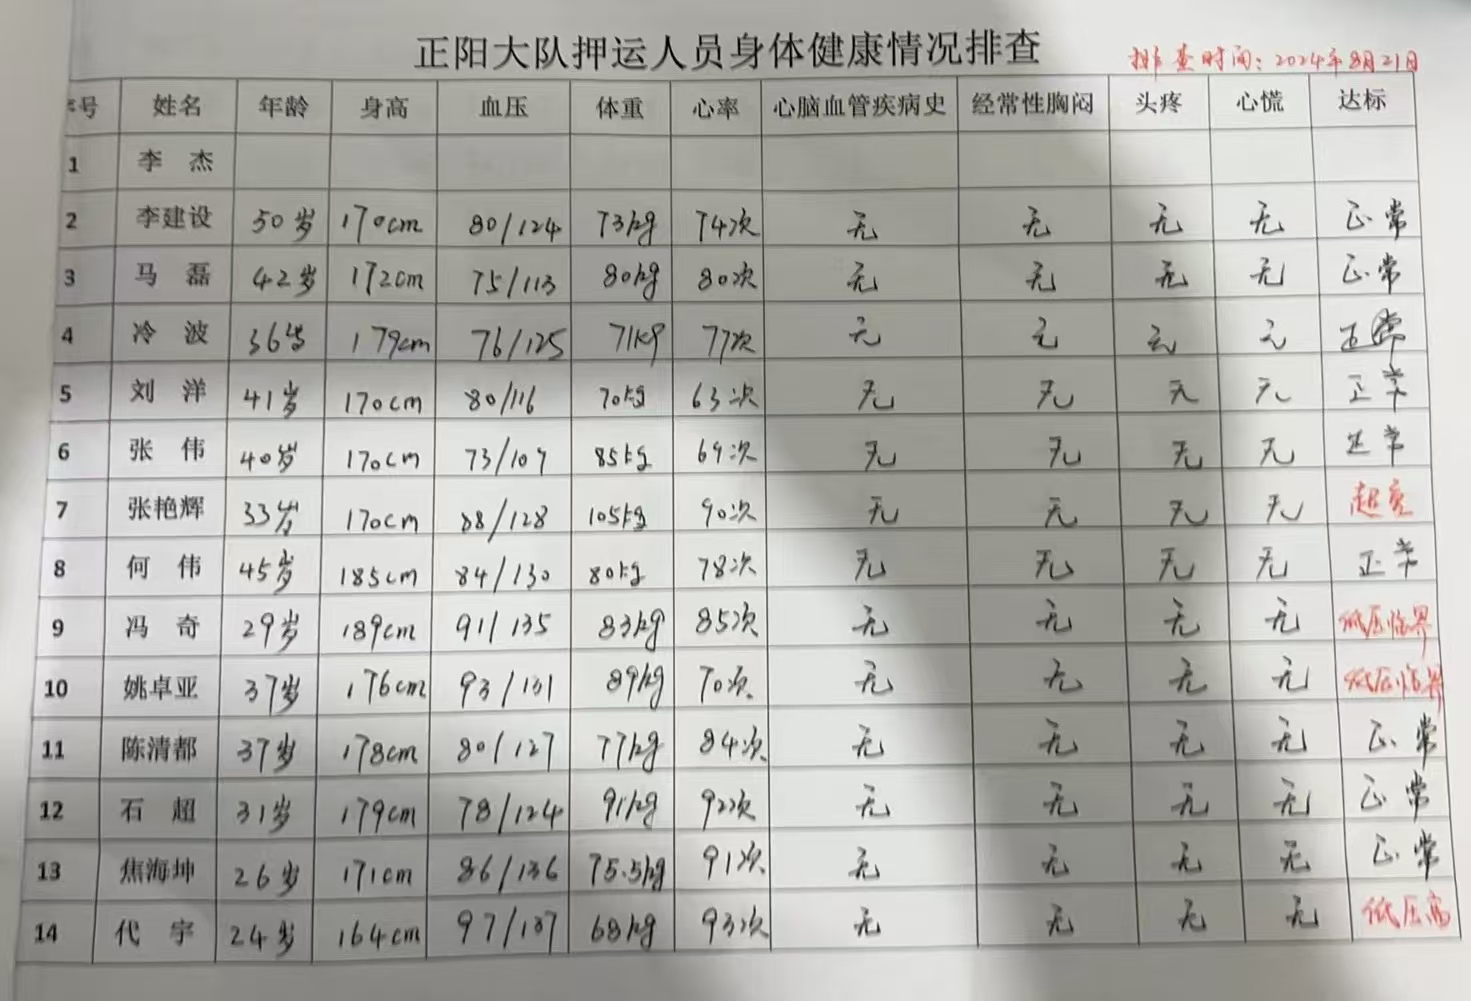 正阳大队押运人员身体健康情况排查
排查时间：2024年8月21日
号 姓名 年龄 身高 血压 体重 心率 心脑血管疾病史 经常性胸闷 头疼 心慌 达标
1 李 杰
2 李建设 50岁 170cm 80/124 73kg 74次 无 无 无 无 正常
3 马 磊 42岁 172cm 75/113 80kg 80次 无 无 无 无 正常
4 冷 波 36岁 179cm 76/125 71kg 77次 无 无 无 无 正常
5 刘 洋 41岁 170cm 80/116 70kg 63次 无 无 无 无 正常
6 张 伟 40岁 170cm 73/109 85kg 69次 无 无 无 无 正常
7 张艳辉 33岁 170cm 88/128 105kg 90次 无 无 无 无 超重
8 何 伟 45岁 185cm 84/130 80kg 78次 无 无 无 无 正常
9 冯 奇 29岁 189cm 91/135 83kg 85次 无 无 无 无 低压临界
10 姚卓亚 37岁 176cm 93/131 89kg 70次 无 无 无 无 低压临界
11 陈清都 37岁 178cm 80/127 77kg 84次 无 无 无 无 正常
12 石 超 31岁 179cm 78/124 91kg 92次 无 无 无 无 正常
13 焦海坤 26岁 171cm 86/136 75.5kg 91次 无 无 无 无 正常
14 代 宇 24岁 164cm 97/137 68kg 93次 无 无 无 无 低压高